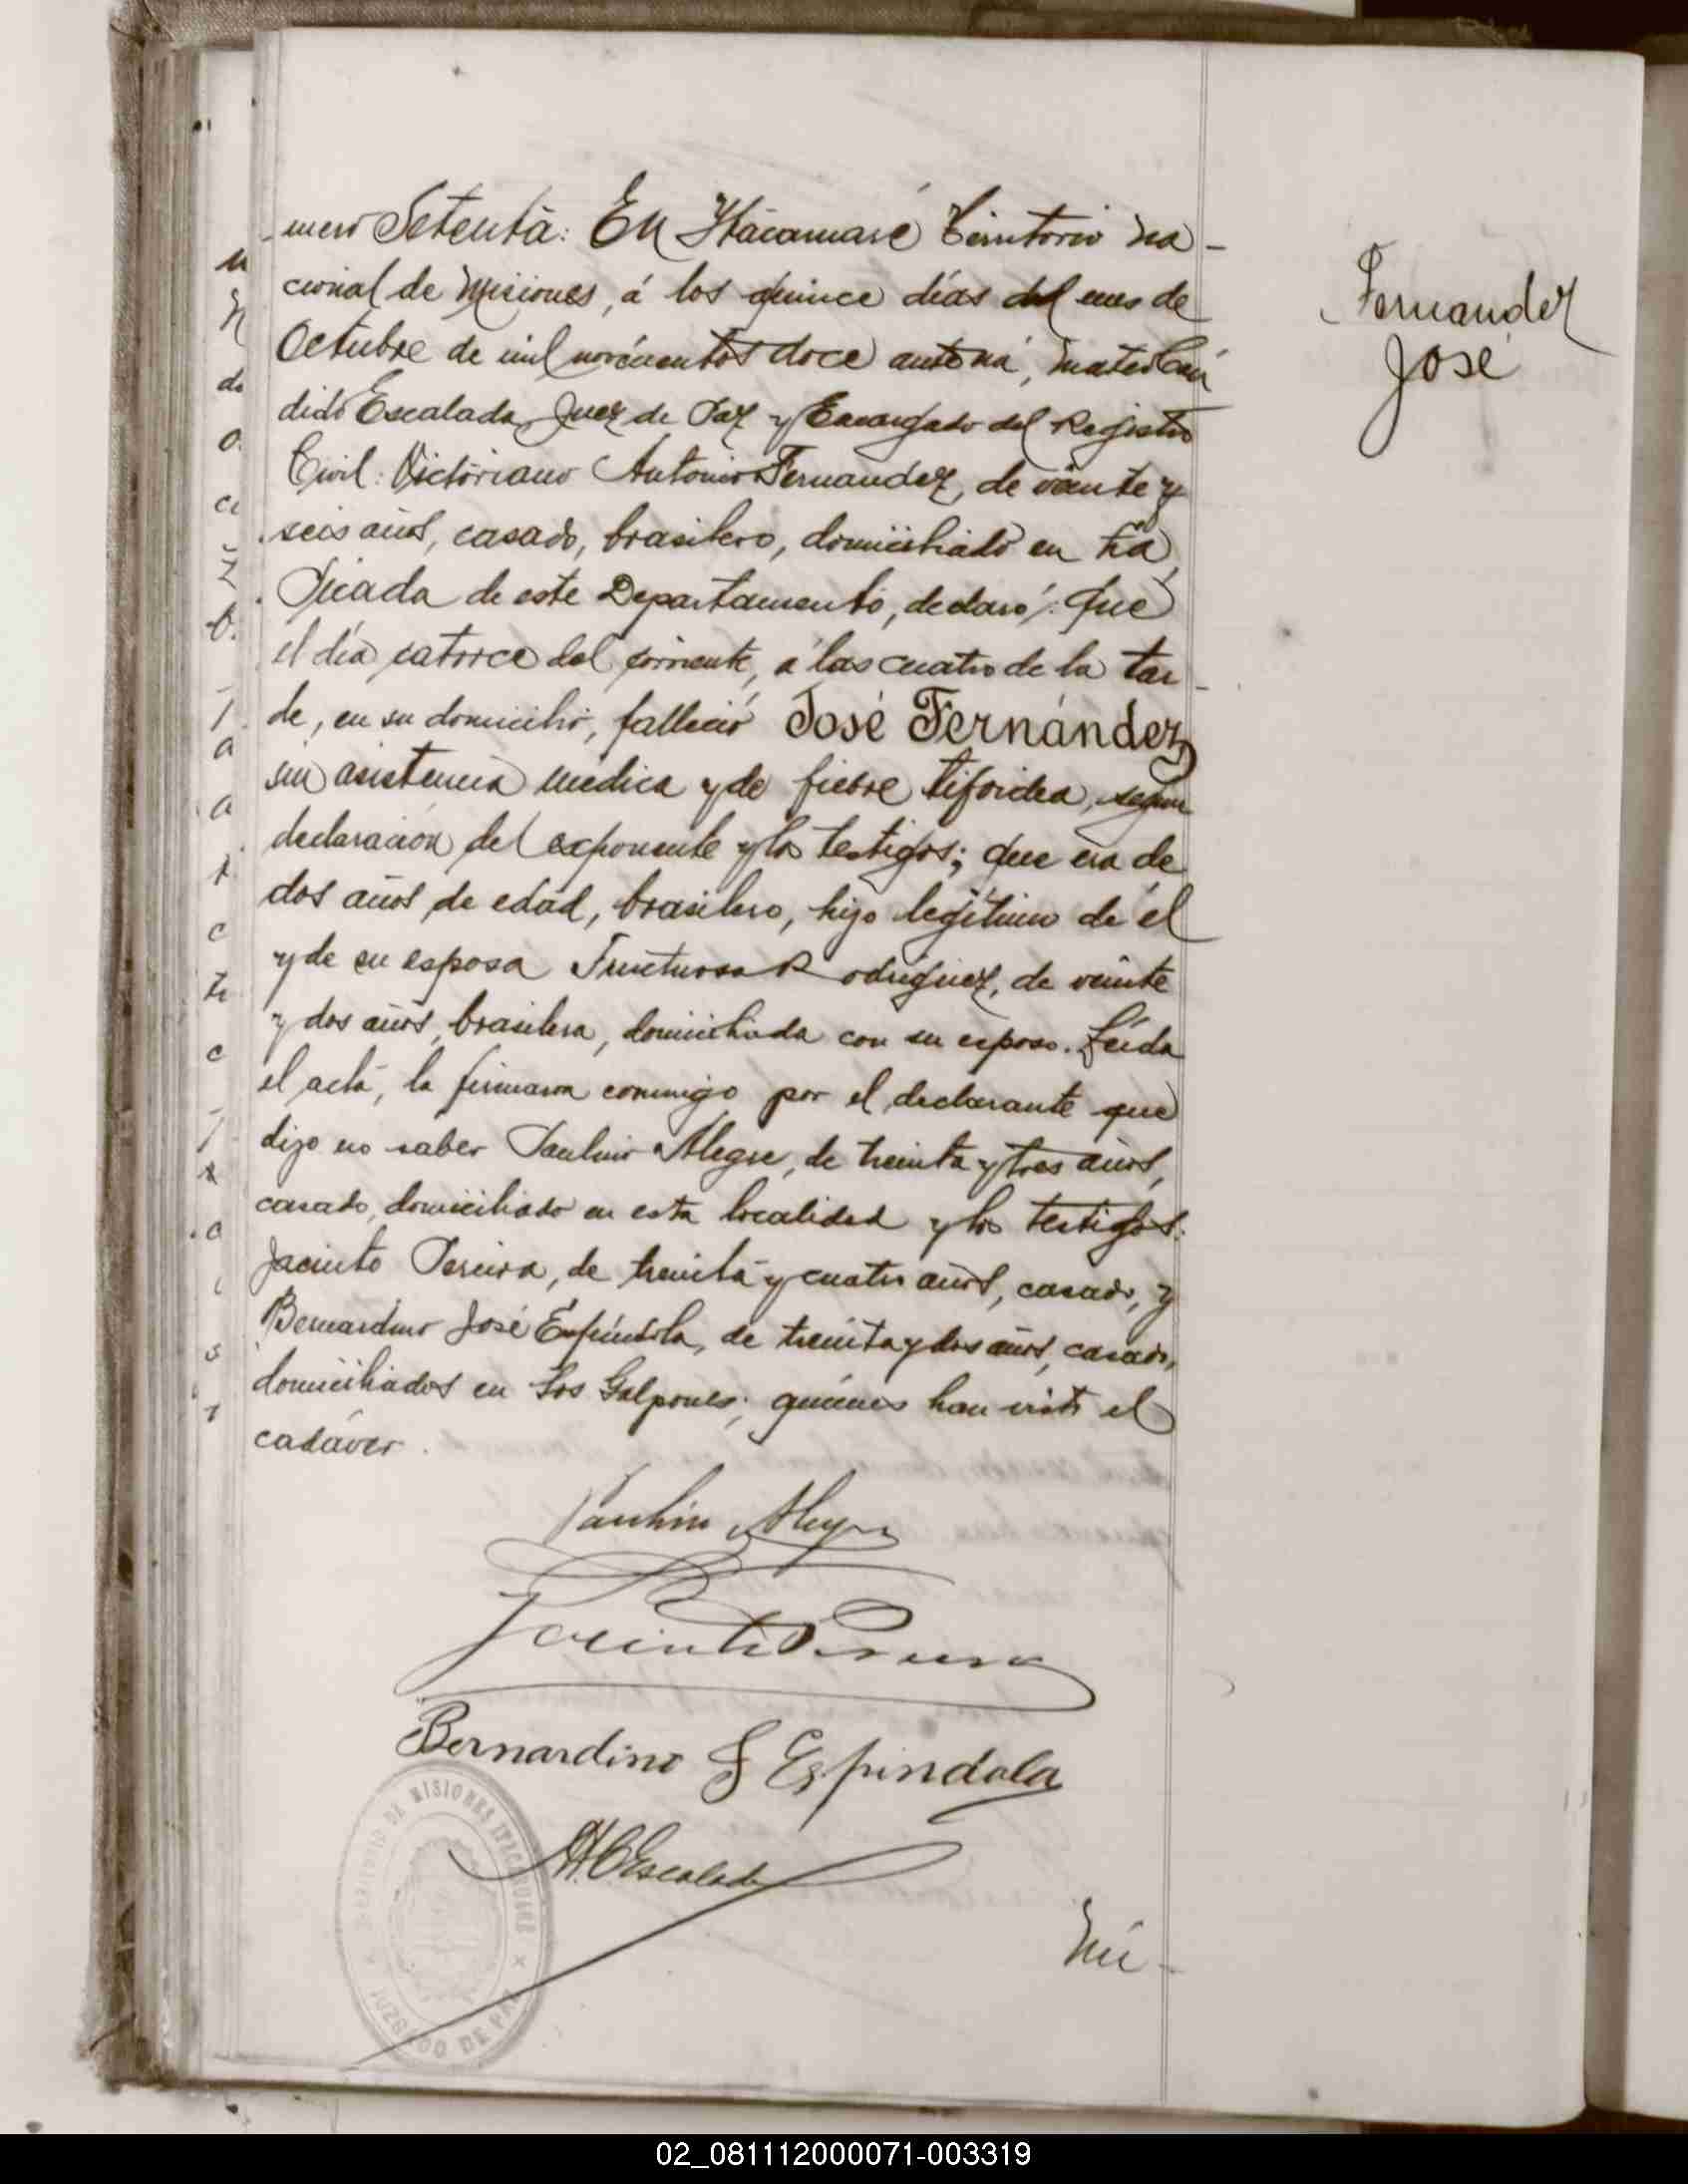 -mero Setenta: En Itacaruaré Territorio Na-
cional de Misiones, á los quince días del mes de
Octubre de mil novecientos doce ante mí, Mateo Cán
dido Escalada, Juez de Paz y Encargado del Registro
Civil: Victoriano Antonio Fernandez, de veinte y
seis años, casado, brasilero, domiciliado en La
Picada de este Departamento, declaró: Que
el día catorce del corriente, á las cuatro de la tar-
de, en su domicilio, falleció José Fernández
sin asistencia médica y de fiebre tifoidea, segun
declaración del exponente y los testigos; que era de
dos años de edad, brasilero, hijo legítimo de él
y de su esposa Fructuosa Rodriguez, de veinte
y dos años, brasilera, domiciliada con su esposo. Leída
el acta, la firmaron conmigo por el declarante que
dijo no saber Paulino Alegre, de treinta y tres años,
casado, domiciliado en esta localidad y los testigos:
Jacinto Pereira, de treinta y cuatro años, casado, y
Bernardino José Espíndola, de treinta y dos años, casado,
domiciliados en Los Galpones; quienes han visto el
cadáver.
Fernandez
José
Paulino Alegre
Jacinto Pereira
Bernardino J Espindola
M.C. Escalada
TERRITORIO DE MISIONES ITACARUARÉ
JUZGADO DE PAZ
Nú-
02_081112000071-003319